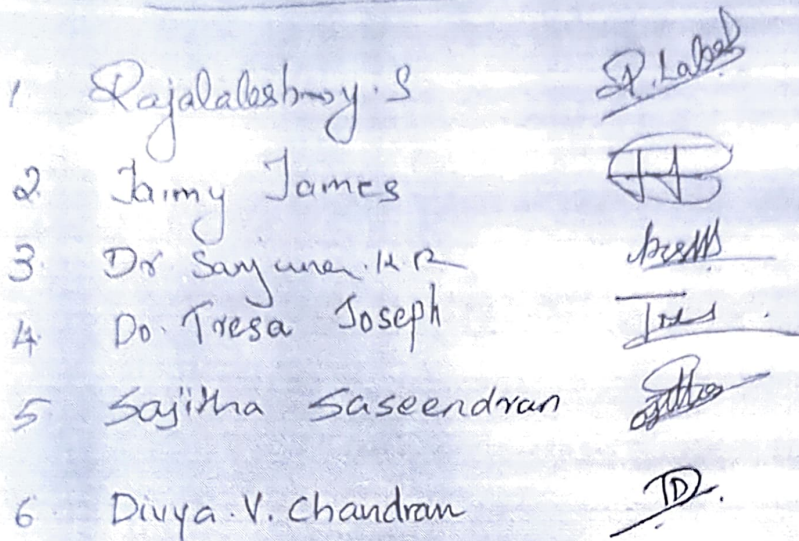 1. Rajalaleshmy. S P. Laksh
2. Jaimy James
3. Dr Sanjuna. K. R
4. Dr. Tresa Joseph
5 Sajitha Saseendran
6 Divya. V. Chandran